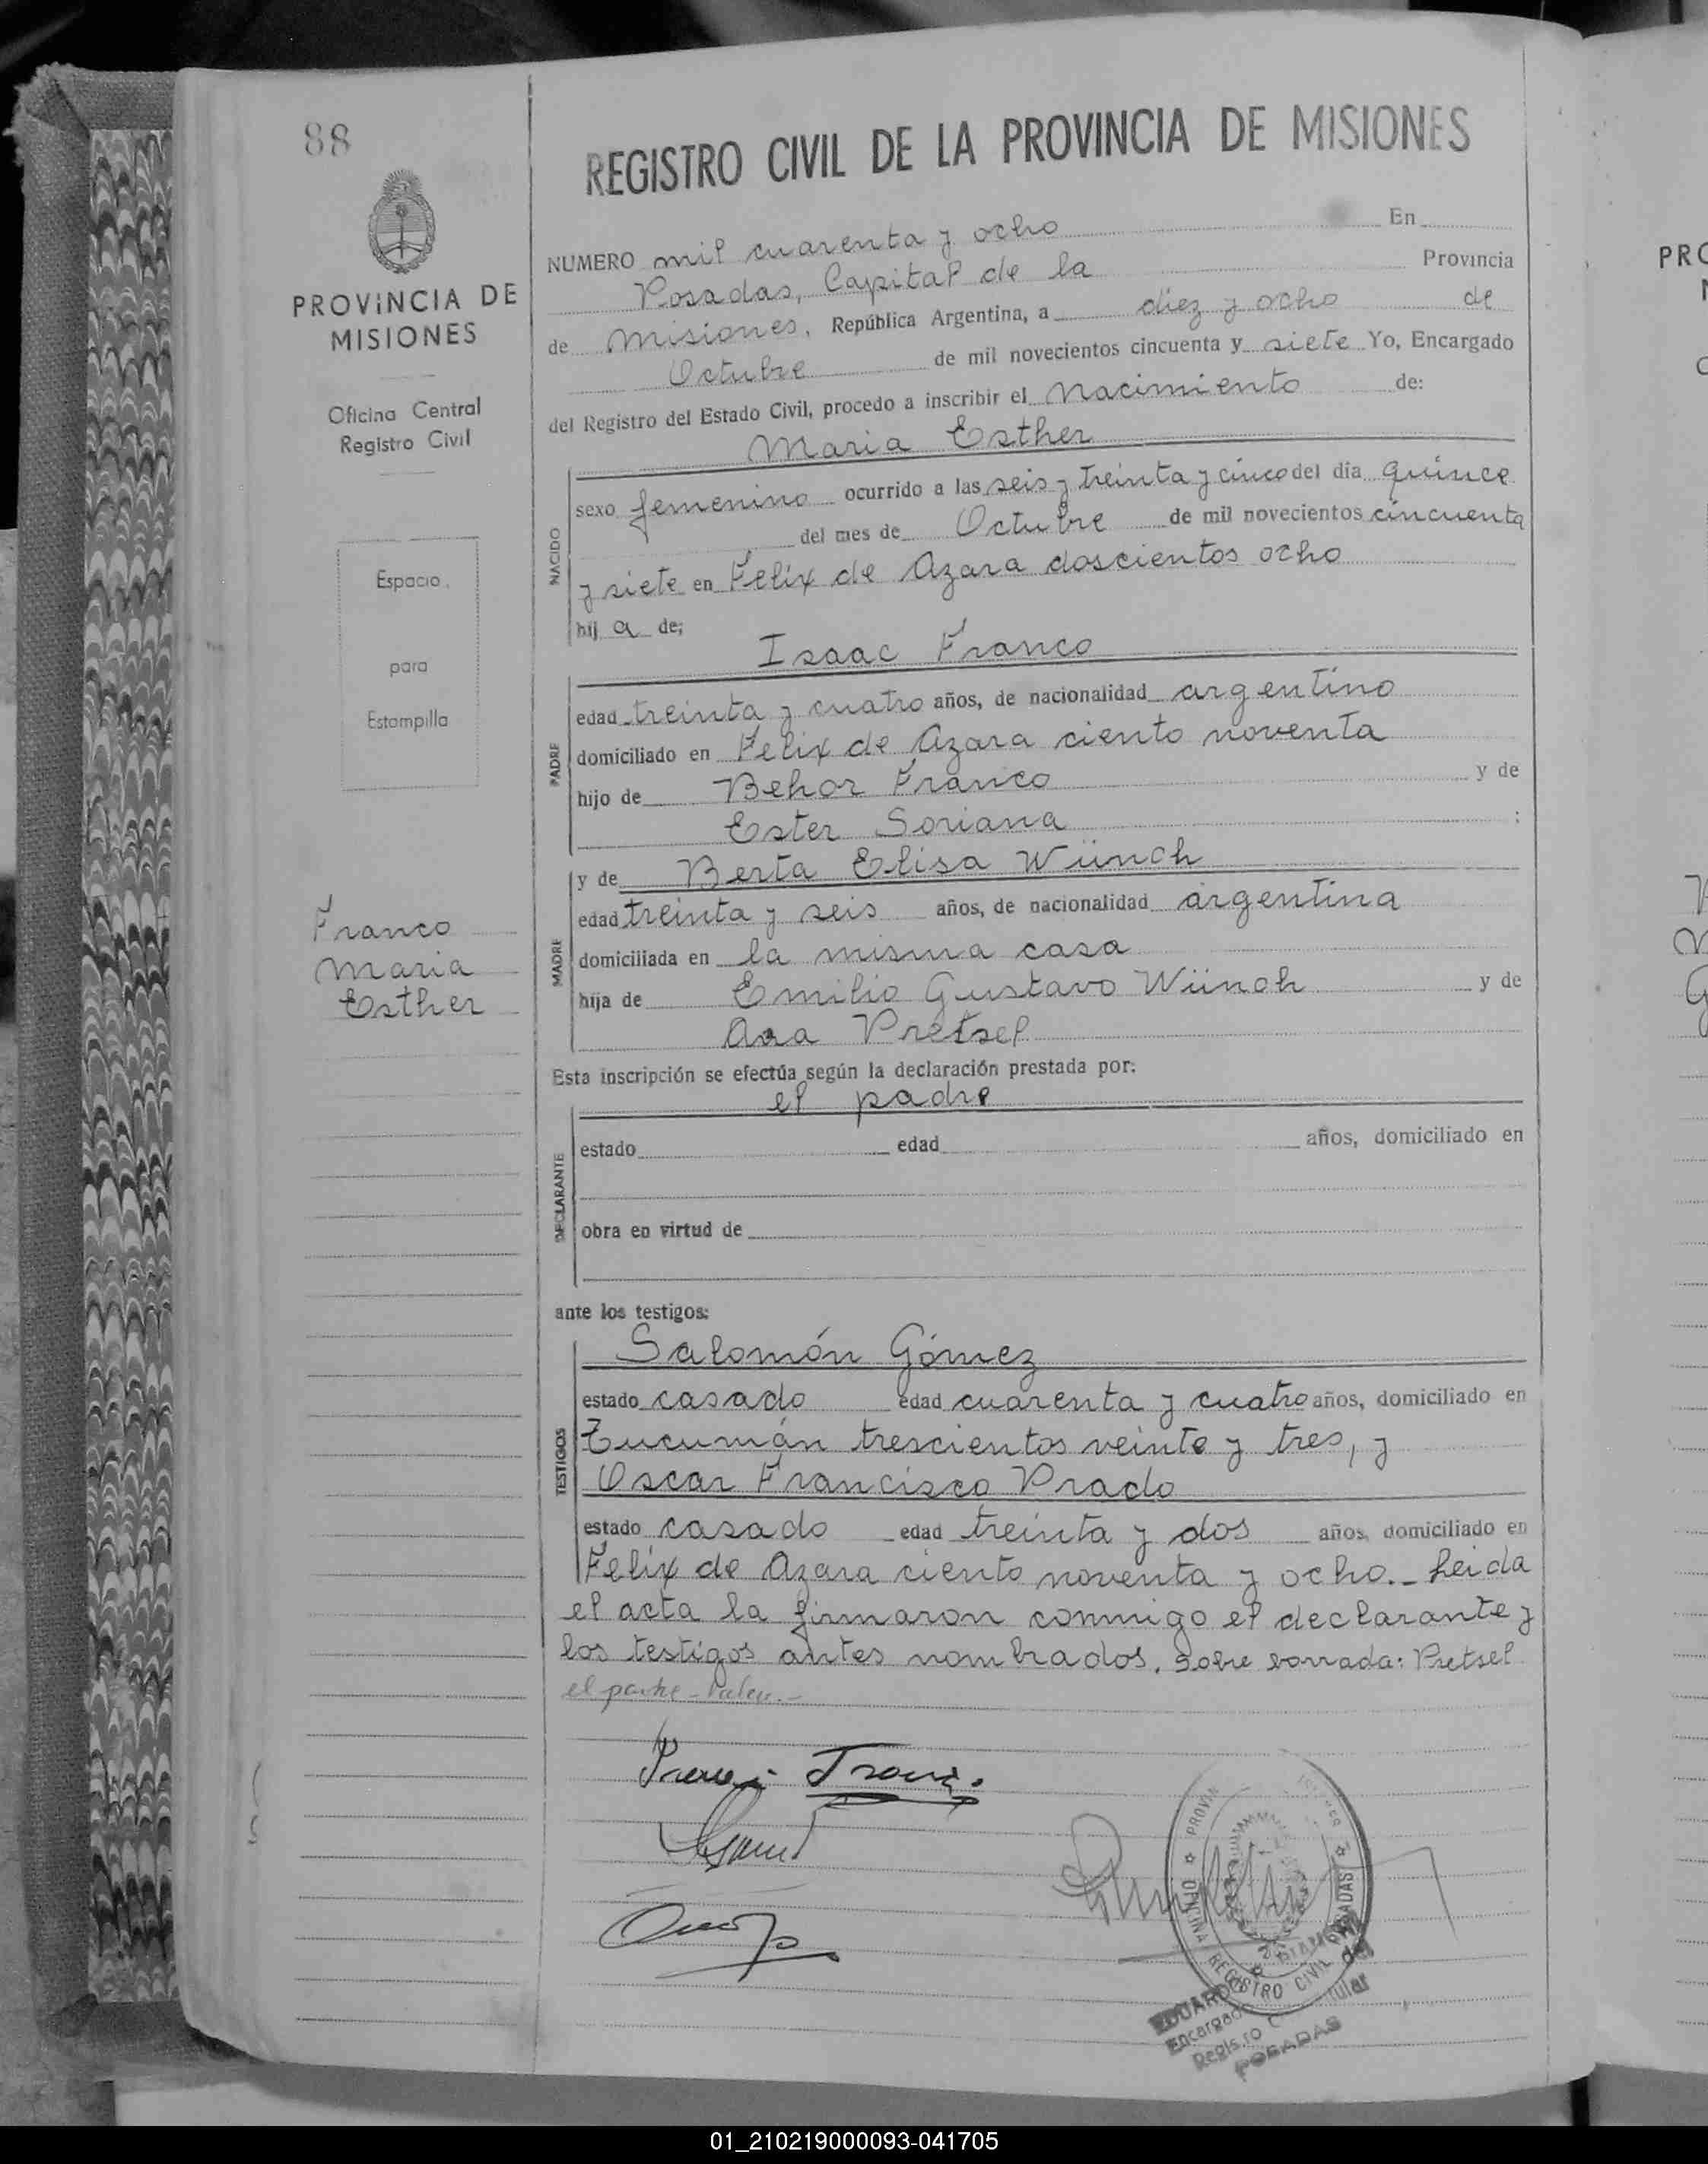 88
PROVINCIA DE
MISIONES
Oficina Central
Registro Civil
Espacio
para
Estampilla
Franco
Maria
Esther
REGISTRO CIVIL DE LA PROVINCIA DE MISIONES
NUMERO mil cuarenta y ocho En
Posadas, Capital de la Provincia
de Misiones, República Argentina, a diez y ocho de
Octubre de mil novecientos cincuenta y siete Yo, Encargado
del Registro del Estado Civil, procedo a inscribir el Nacimiento de:
Maria Esther
NACIDO
sexo femenino ocurrido a las seis y treinta y cinco del día quince
del mes de Octubre de mil novecientos cincuenta
y siete en Felix de Azara doscientos ocho
hij a de;
Isaac Franco
PADRE
edad treinta y cuatro años, de nacionalidad argentino
domiciliado en Felix de Azara ciento noventa
hijo de Behor Franco y de
Ester Soriana ;
MADRE
y de Berta Elisa Wünch
edad treinta y seis años, de nacionalidad argentina
domiciliada en la misma casa
hija de Emilio Gustavo Wünch y de
Ana Pretsel
Esta inscripción se efectúa según la declaración prestada por:
el padre
DECLARANTE
estado edad años, domiciliado en
obra en virtud de
ante los testigos:
TESTIGOS
Salomón Gómez
estado casado edad cuarenta y cuatro años, domiciliado en
Tucumán trescientos veinte y tres, y
Oscar Francisco Prado
estado casado edad treinta y dos años, domiciliado en
Felix de Azara ciento noventa y ocho.- Leida
el acta la firmaron conmigo el declarante y
los testigos antes nombrados. Sobre borrada: Pretsel
el padre - Valen.-
OFICINA REGISTRO CIVIL POSADAS
EDUARDO
Encargado
Titular
POSADAS
PRO
01_210219000093-041705